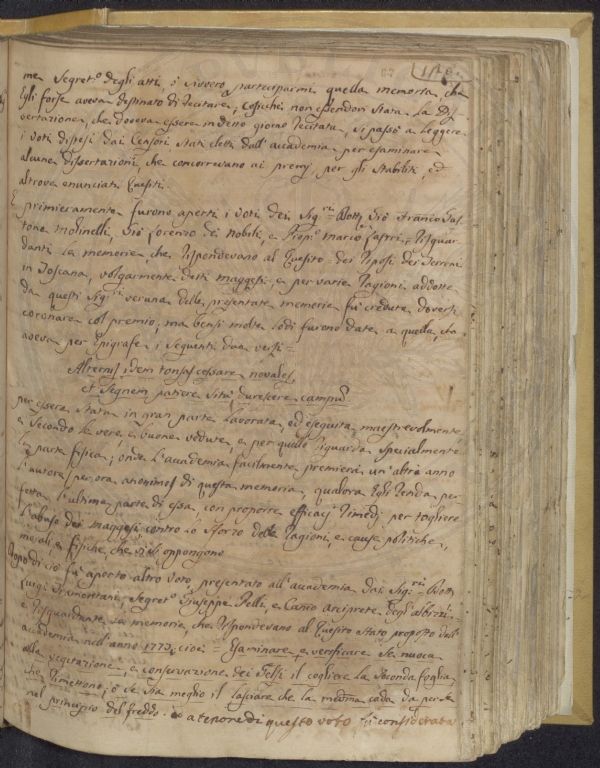 me Segret.º degli atti, ò sivvero parteciparmi quella memoria, che
Egli forse aveva destinato di recitare; cosichè non essendovi stata la Dis-
sertazione, che doveva essere in detto giorno recitata, si passò a leggere
i voti distesi dai Censori stati eletti dall'accademia per esaminare
alcune dissertazioni, che concorrevano ai premj per gli stabiliti, ed
altrove enunciati Quesiti.
E primieramente furono aperti i voti dei Sig.ri Dott.
Molinelli, Lorenzo de Nobili, e Prop.º Marco Lastri, risguar-
danti le memorie che rispondevano al Quesito dei Riposi dei Terreni
in Toscana, volgarmente detti maggesi, e per varie ragioni addotte
da questi Sig.ri veruna delle presentate memorie fu creduta doversi
coronare col premio, ma bensì molte lodi furono date a quella, che
aveva per epigrafe i seguenti due versi =
Alternis idem tonsas cessare novales,
et segnem patiere situ durescere campum
per essere stata in gran parte lavorata, ed eseguita maestrevolmente
e secondo le vere, e buone vedute, e per quello riguarda specialmente
la parte fisica; onde l'accademia facilmente premierà un'altro anno
l'autore per ora anonimo di questa memoria, qualora Egli renda per-
fetta l'ultima parte di essa, con proporre efficaci rimedj per togliere
l'abuso dei maggesi contro lo sforzo delle ragioni, e cause politiche,
morali, e fisiche, che vi si oppongono
Dopo di ciò fu aperto altro voto, presentato all'accademia dai Sig.ri Dott.
Luigi Tramontani, Segret.º Giuseppe Pelli, e Can.co arciprete degli Albizzi =
e risguardante le memorie, che rispondevano al Quesito stato proposto dall'
accademia nell'anno 1773, cioè = Esaminare, e verificare se nuoca
alla vegetazione, e conservazione dei Gelsi il cogliere la seconda foglia,
che rimettono, ò se sia meglio il lasciare che la medma cada da per se
nel principio del freddo. a tenore di questo voto fù considerata